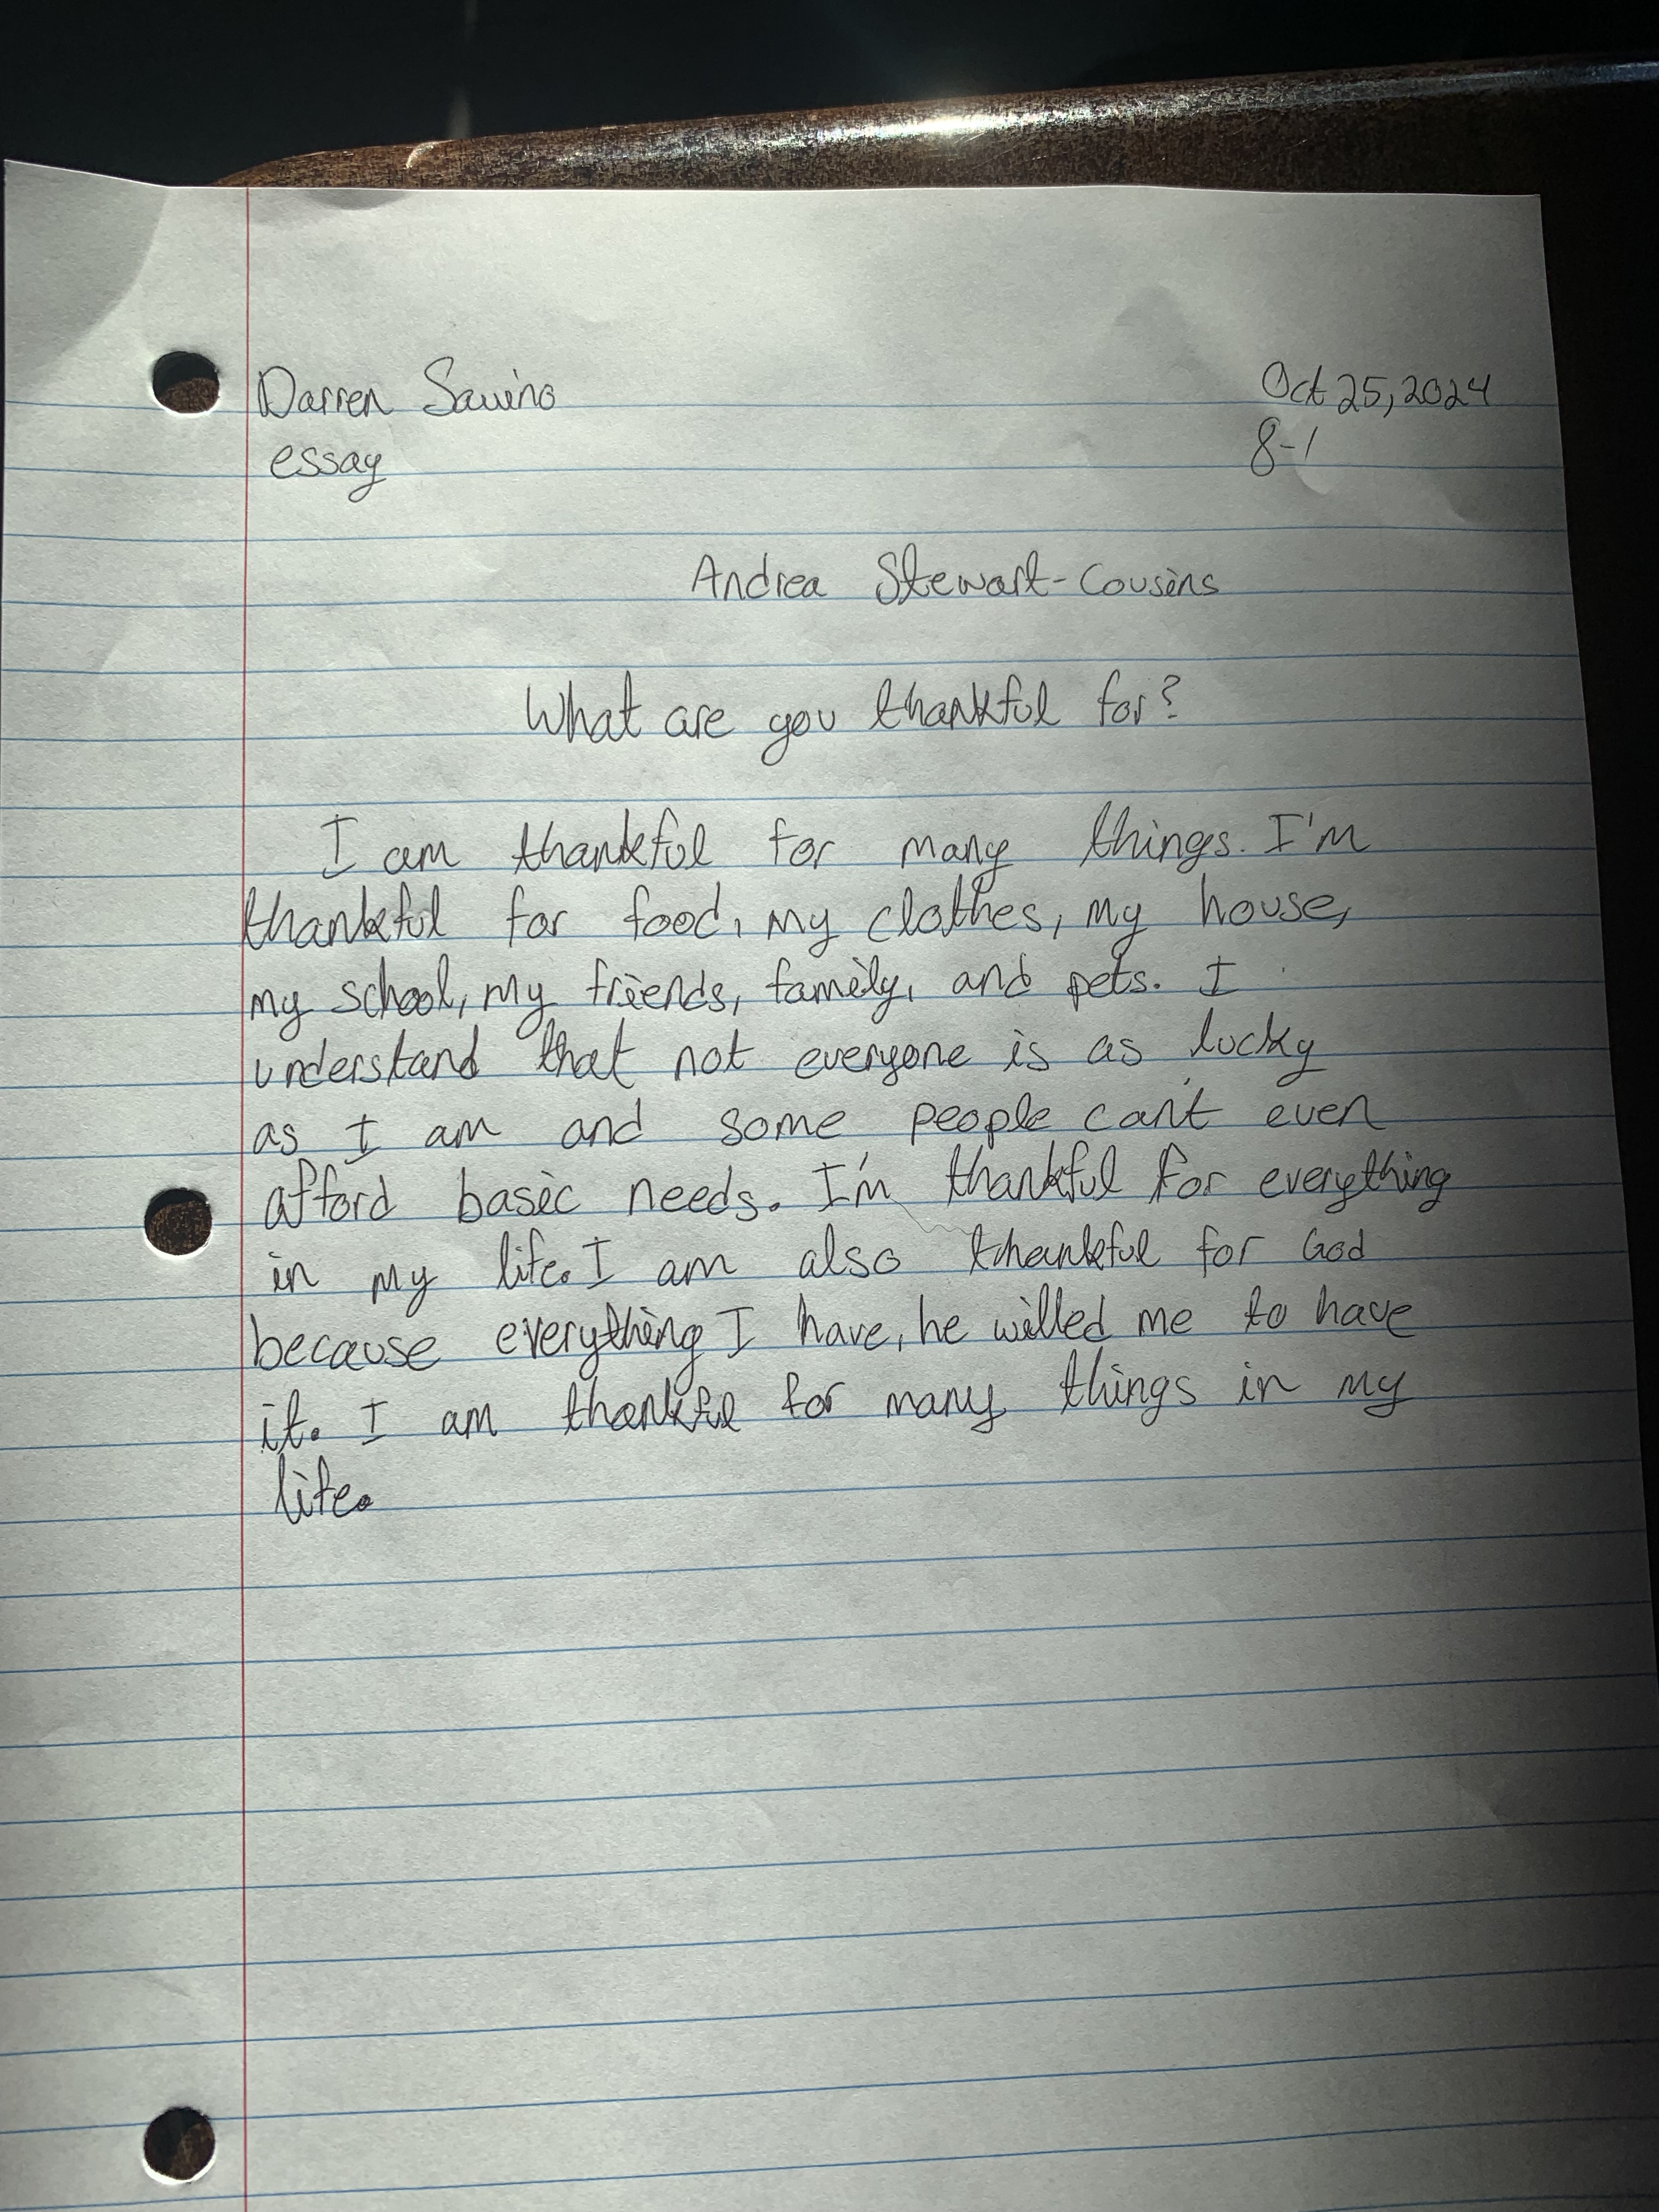 Darren Sawino Oct 25, 2024
essay 8-1
Andrea Stewart-Cousins
What are you thankful for?
I am thankful for many things. I'm
thankful for food, my clothes, my house,
my school, my friends, family, and pets. I
understand that not everyone is as lucky
as I am and some people can't even
afford basic needs. I'm thankful for everything
in my life. I am also thankful for God
because everything I have, he willed me to have
it. I am thankful for many things in my
life.